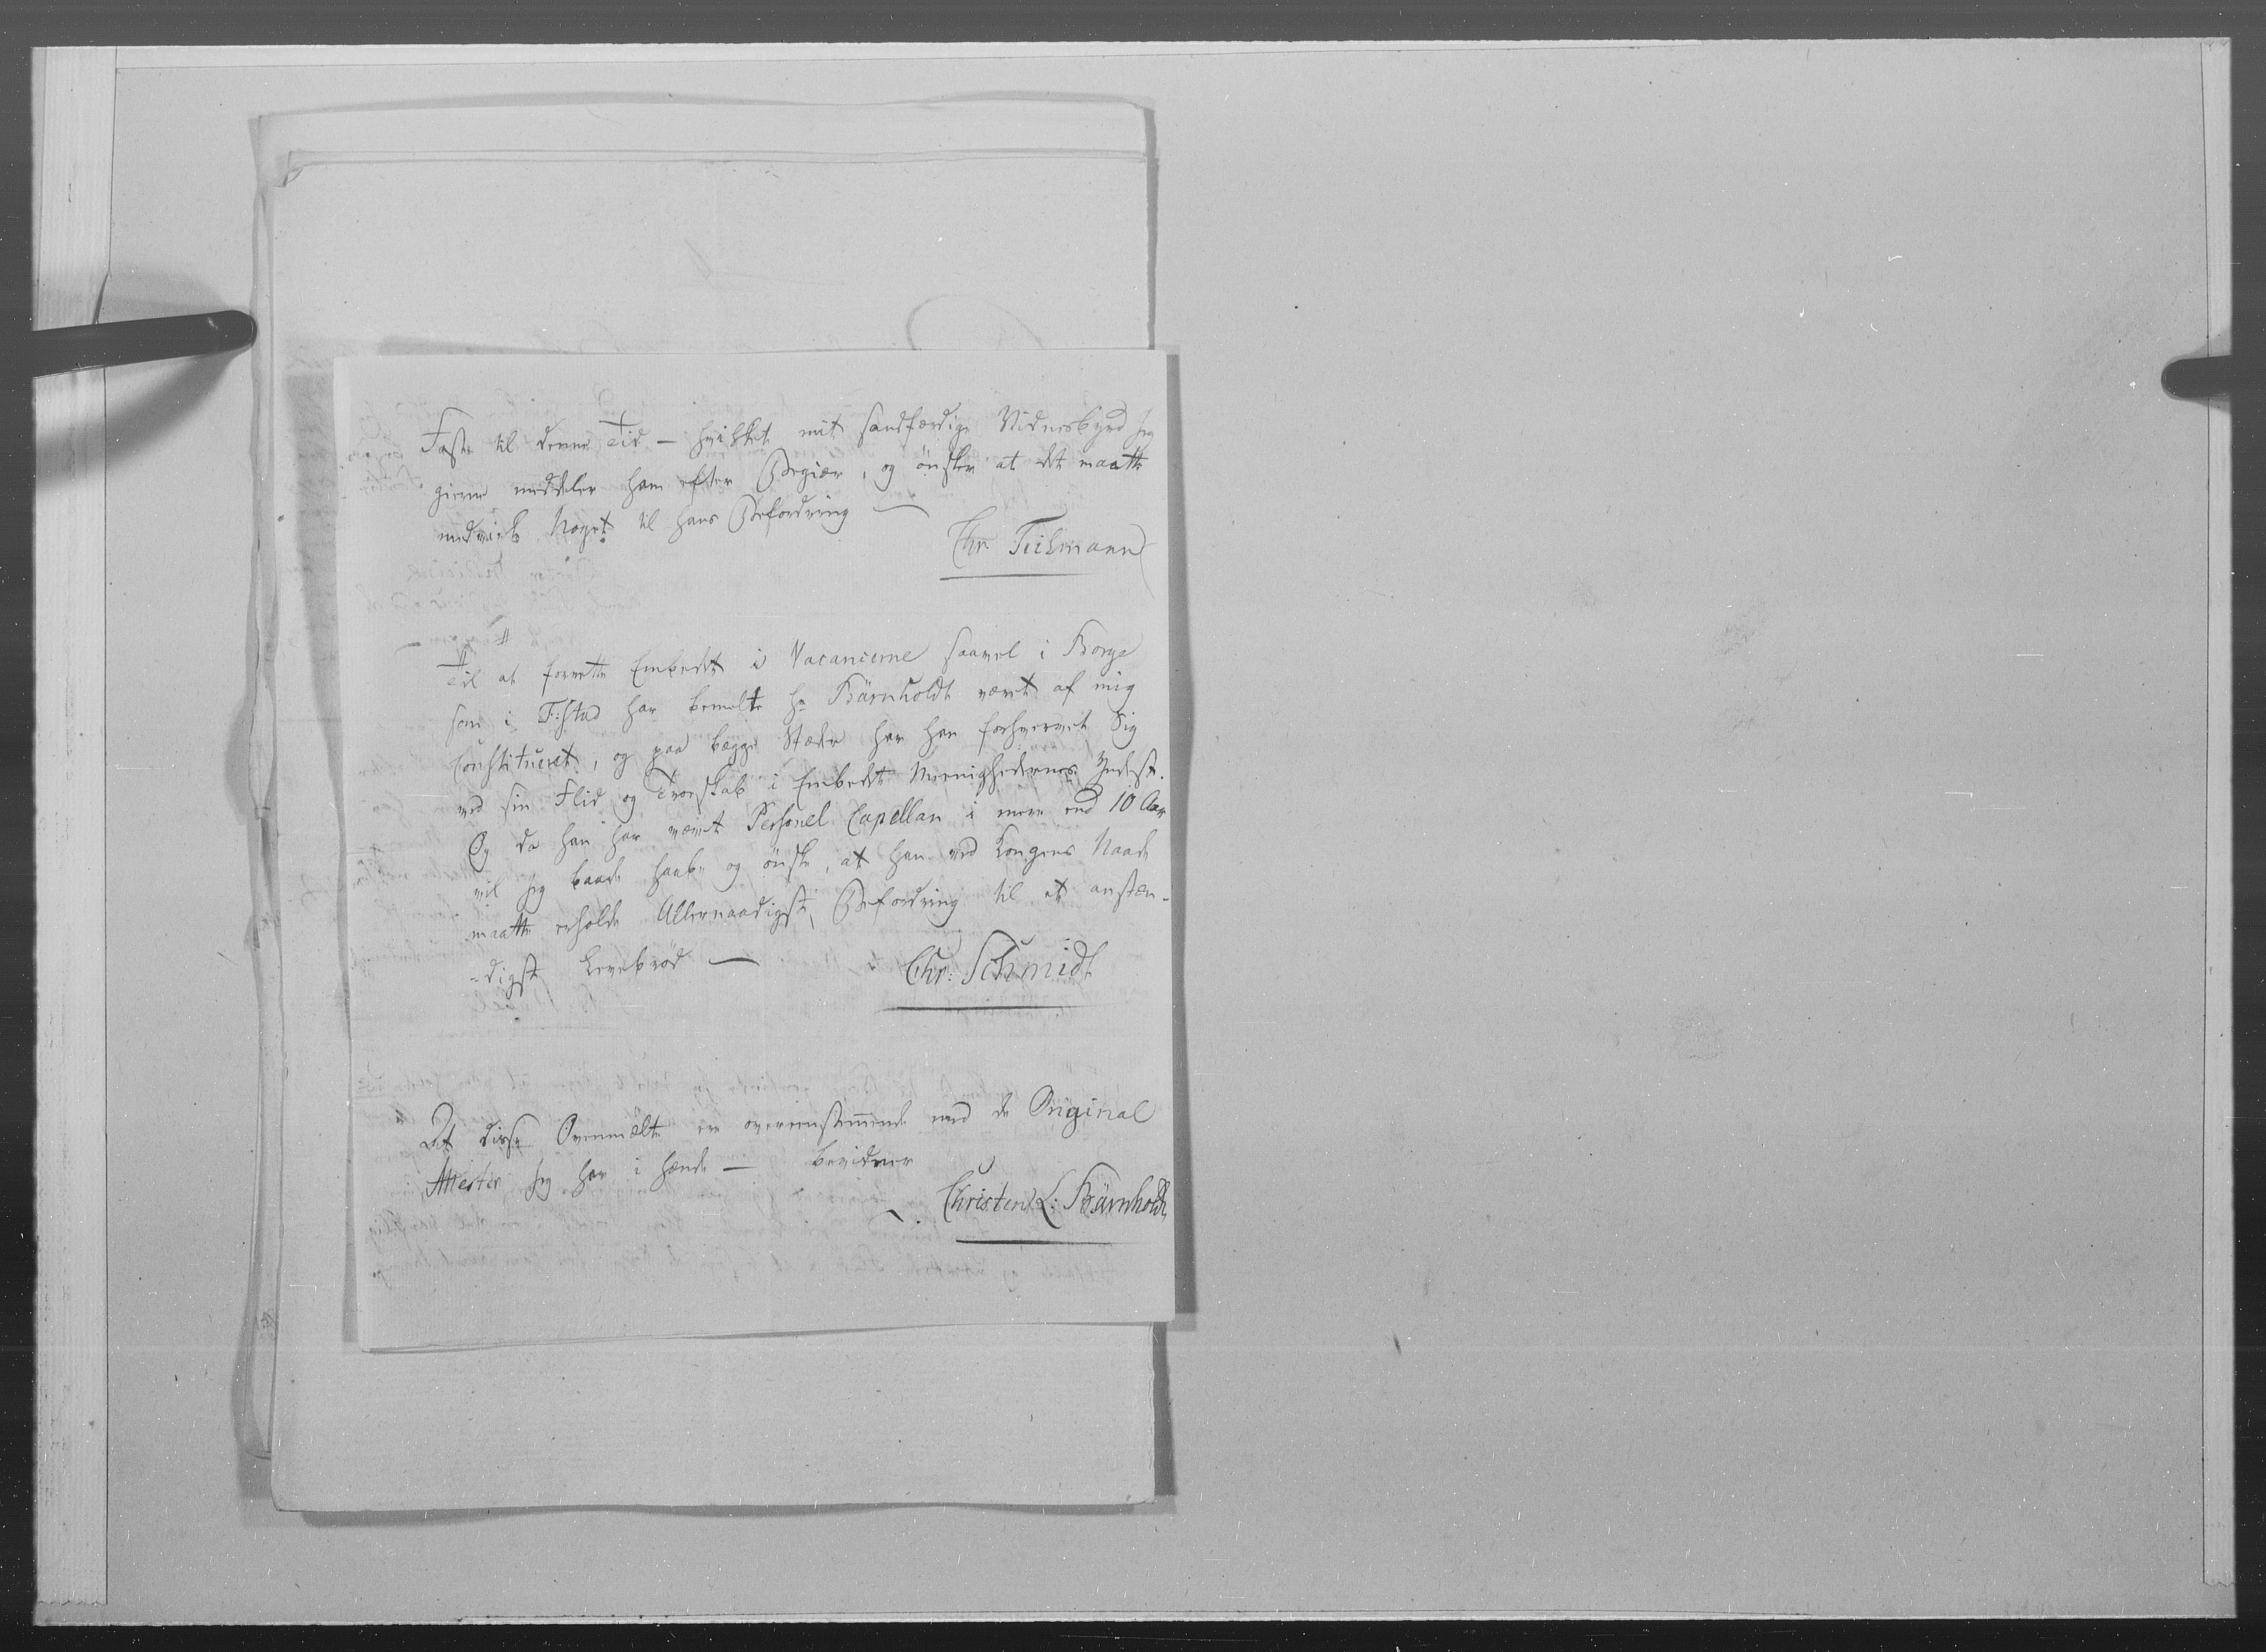 Faste til denne Tid - hvilket mit sandfærdige Vidnesbyrd jeg
gierne meddeler ham efter Begiær, og ønsker at det maatte
medvirke Noget til hans Befordring
Chr. Teilmann
Til at forrette Embedet i Vacancerne saavel i Borge
som i F:stad har bemelte Hr Bärnholdt været af mig
Constitueret, og paa begge Stæder har han forhvervet Sig
ved sin Flid og Troeskab i Embedet Meenighedernes Yndest.
Og da han har været Personel Capellan i mere end 10 Aar
vil jeg baade haabe og ønske, at han ved Kongens Naade
maatte erholde Allernaadigst Befordring til et anstæn-
-digt Levebrød -
Chr: Schmidt
At disse Ovenmelte ere overeensstemmende med de Original
Attester jeg har i Hænde - bevidner
Christen L: Bärnholdt